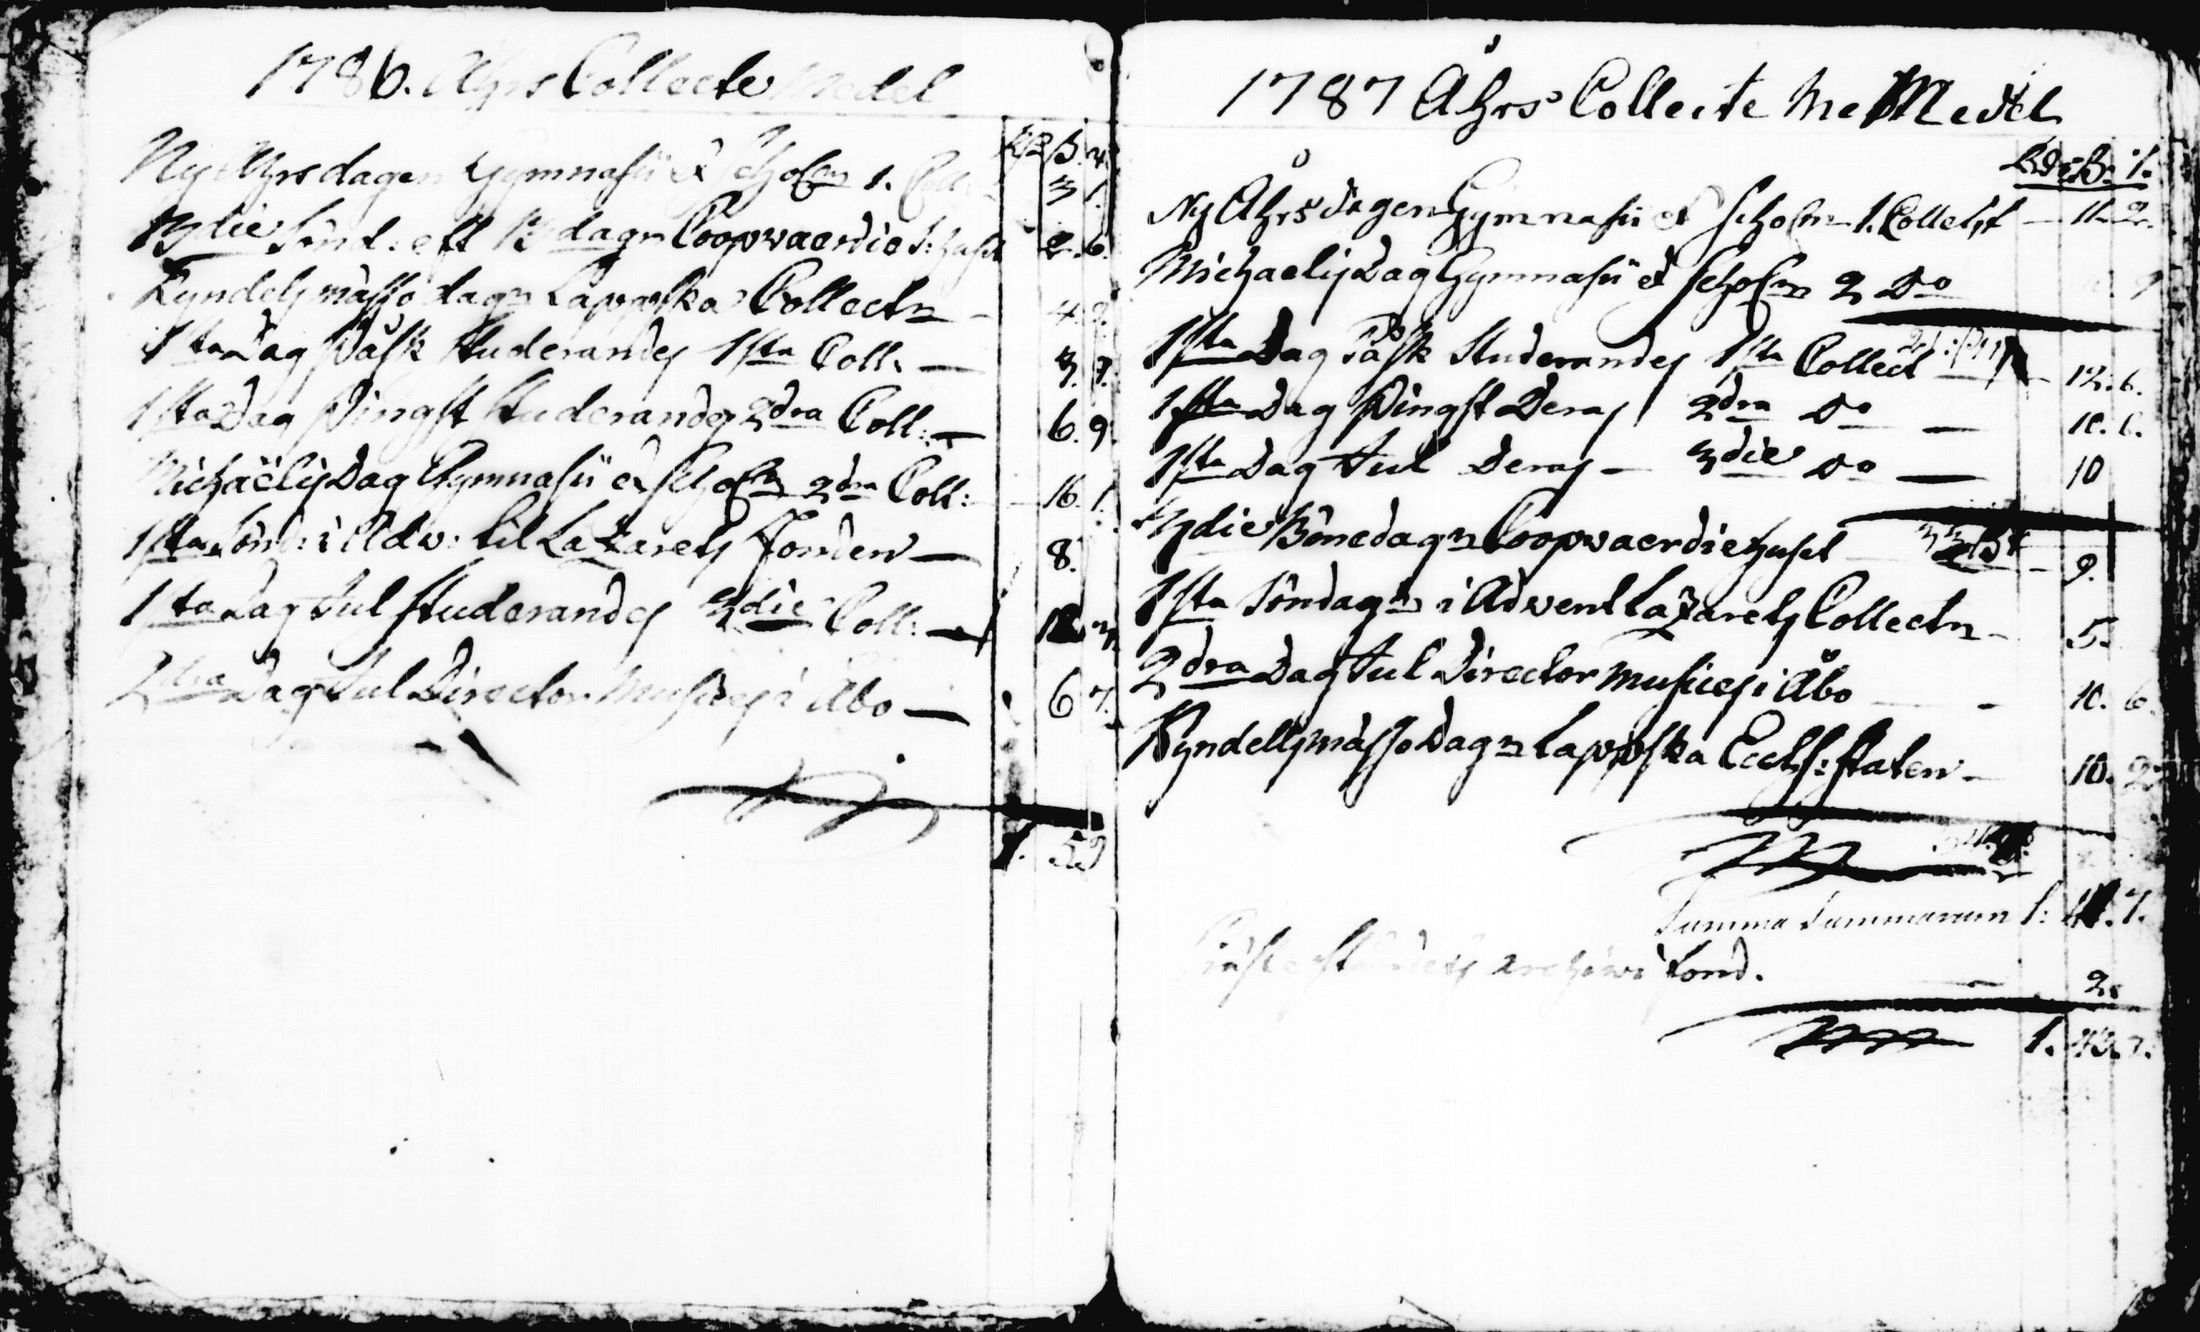 1786. Åhrs Collecte Medel
Rd ß. r.
Ny Åhrsdagen Gymnasii et Scholn 1. Coll. 3 1.
3die Sönd. eft 13 dagn Coopvaerdie S: huset 2. 6.
Kyndelsmässo dagn Lappska Collectn - 4. 2.
1sta Dag Påsk Studerandes 1sta Coll. — 3. 7.
1sta Dag Pingst Studerandes 2dra Coll: — 6. 9.
Michaëlis Dag Gymnasii et Scholn 2dra Coll: 16. 1.
1sta Sönd: i Adv: til Lazarets Fonden — 8.
1sta Dag Jul Studerandes 3die Coll: —
2dra Dag Jul Director Musices i Åbo — 6 7.
1. 5.
1787 Åhrs Collecte Me Medel
Rdr ß: r.
Ny Åhrs dagen Gymnasii et Scholn 1. Collect — 11. 2.
Michaelis Dag Gymnasii et Scholn 2 Do 9
1sta Dag Påsk Studerandes 1sta Collect — 12. 6.
1sta Dag Pingst Deras 2dra Do — 10. 6.
1sta Dag Jul Deras — 3die Do — 10
3die Bönedagn Coopvaerdiehuset — 9.
1sta Söndagn i Advent Lazarets Collectn — 5.
2dra Dag Jul Director Musices i Åbo — 10. 6.
Kyndelsmässo Dagn Lappska Eccls: staten — 10. 2.
Summa Summarum 1: 7.
Prästeståndets archivi fond. — 2.
1. 43. 7.